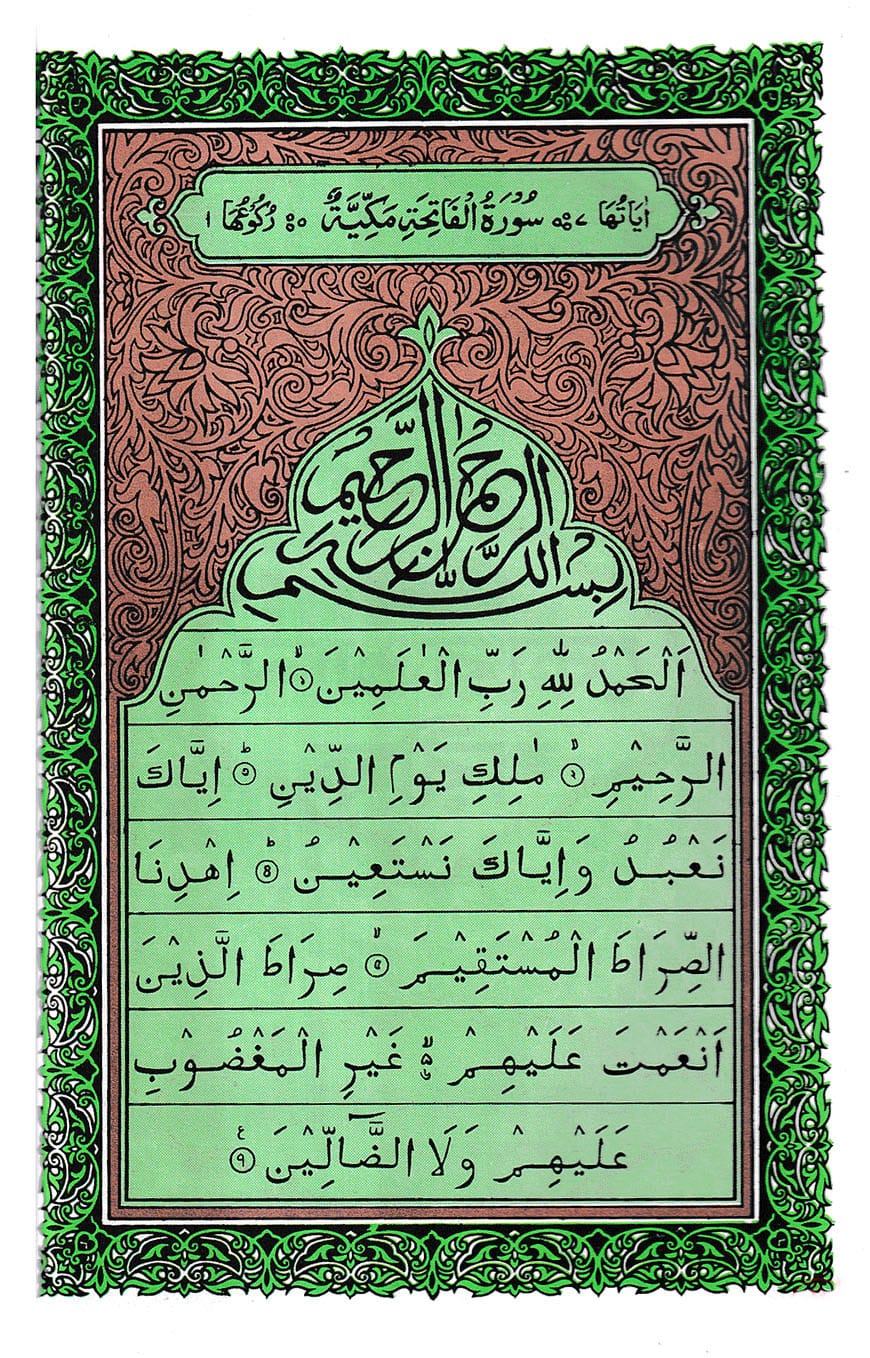 اٰيَاتُهَا ٧ سُوْرَةُ الْفَاتِحَةِ مَكِّيَّةٌ ٥ رُكُوْعُهَا ١
بِسْمِ اللّٰهِ الرَّحْمٰنِ الرَّحِيْمِ
اَلْحَمْدُ لِلّٰهِ رَبِّ الْعٰلَمِيْنَ ۙ﴿١﴾ الرَّحْمٰنِ
الرَّحِيْمِ ۙ﴿٢﴾ مٰلِكِ يَوْمِ الدِّيْنِ ؕ﴿٣﴾ اِيَّاكَ
نَعْبُدُ وَاِيَّاكَ نَسْتَعِيْنُ ؕ﴿۴﴾ اِهْدِنَا
الصِّرَاطَ الْمُسْتَقِيْمَ ۙ﴿۵﴾ صِرَاطَ الَّذِيْنَ
اَنْعَمْتَ عَلَيْهِمْ ۙ۵ غَيْرِ الْمَغْضُوْبِ
عَلَيْهِمْ وَلَا الضَّآلِّيْنَ ﴿٩﴾ ع